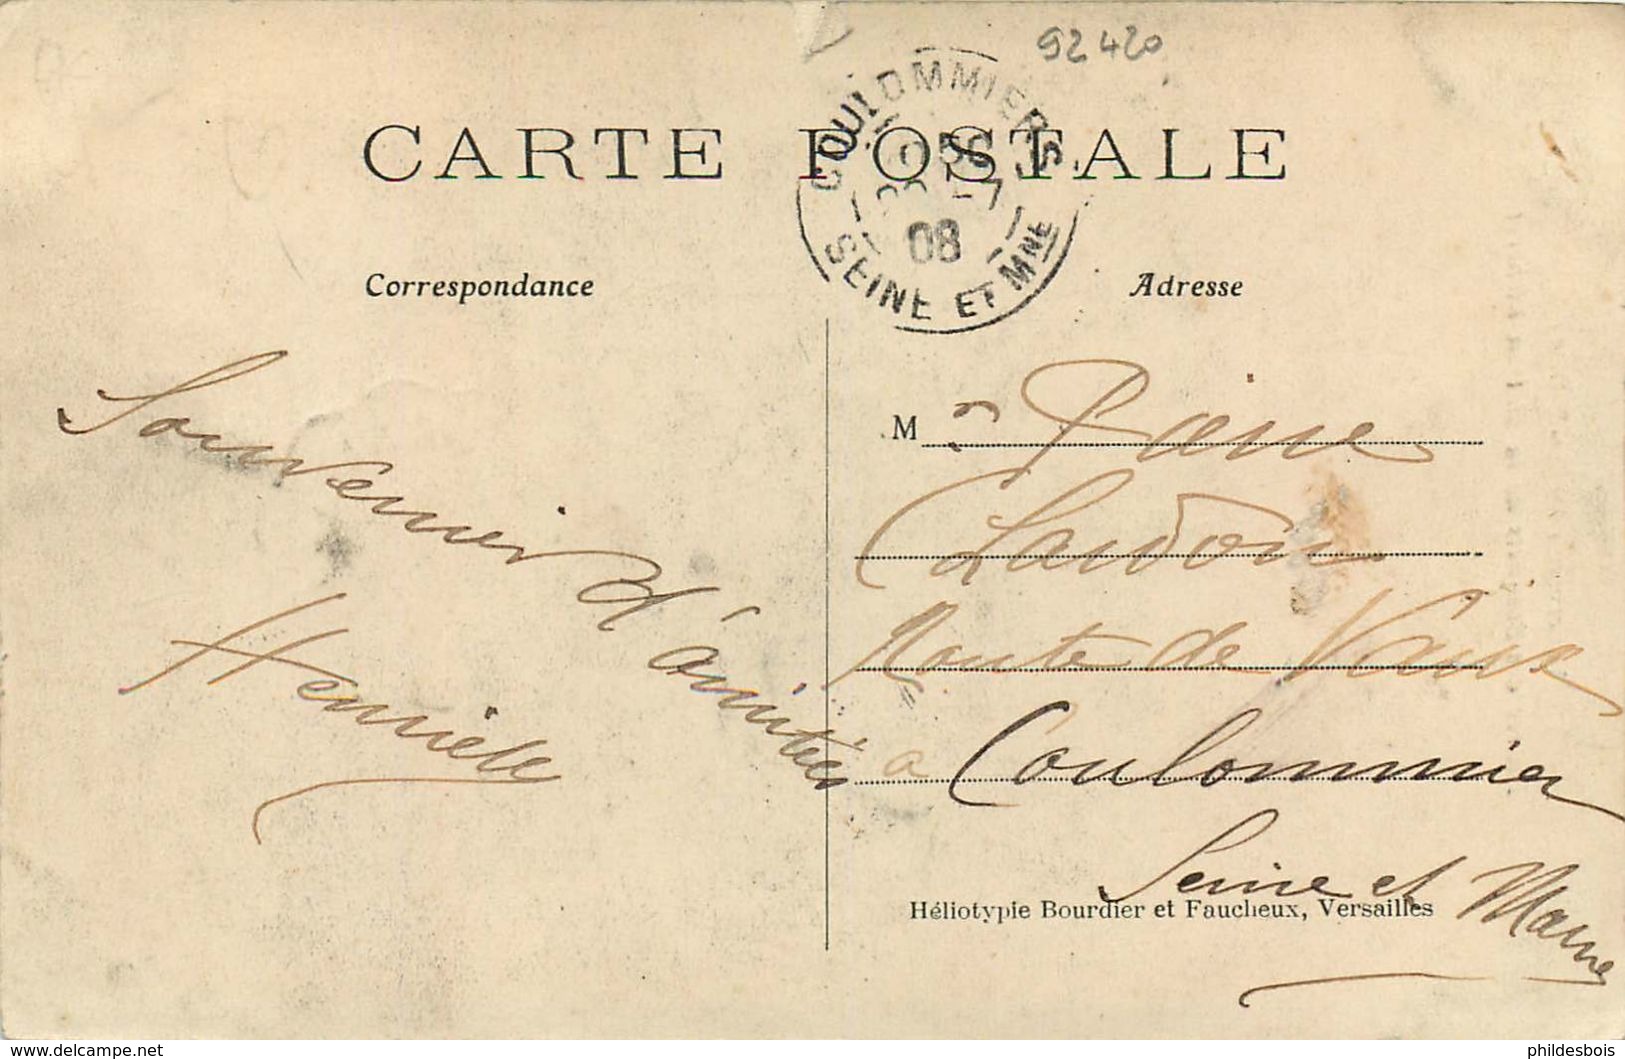 92420
CARTE POSTALE
COULOMMIERS
-7
08
SEINE ET MNE
Correspondance
Adresse
Souvenir d'amitiés
M
Route de Vaux
a Coulommier
Seine et Marne
Héliotypie Bourdier et Faucheux, Versailles
www.delcampe.net
phildesbois